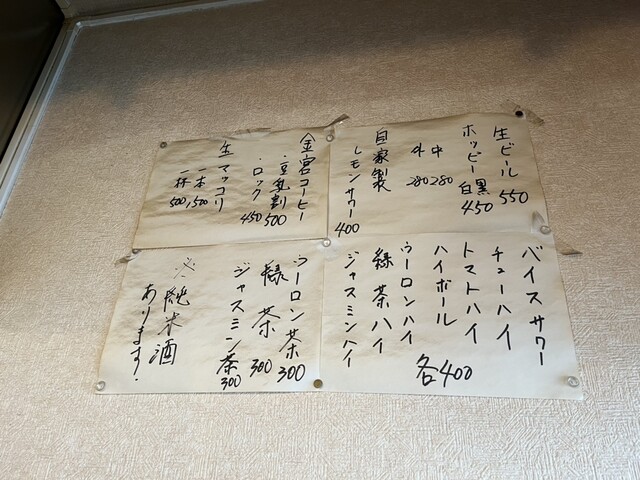 生ビール 550
ホッピー 白 黒 450
中 280
外 280
自家製
レモンサワー 400
金宮コーヒー
・豆乳割 500
・ロック 450
生マッコリ
一本 1,500
一杯 500
バイスサワー
チューハイ
トマトハイ
ハイボール
ウーロンハイ
緑茶ハイ
ジャスミンハイ
各400
ウーロン茶 300
緑茶 300
ジャスミン茶 300
※純米酒
あります。